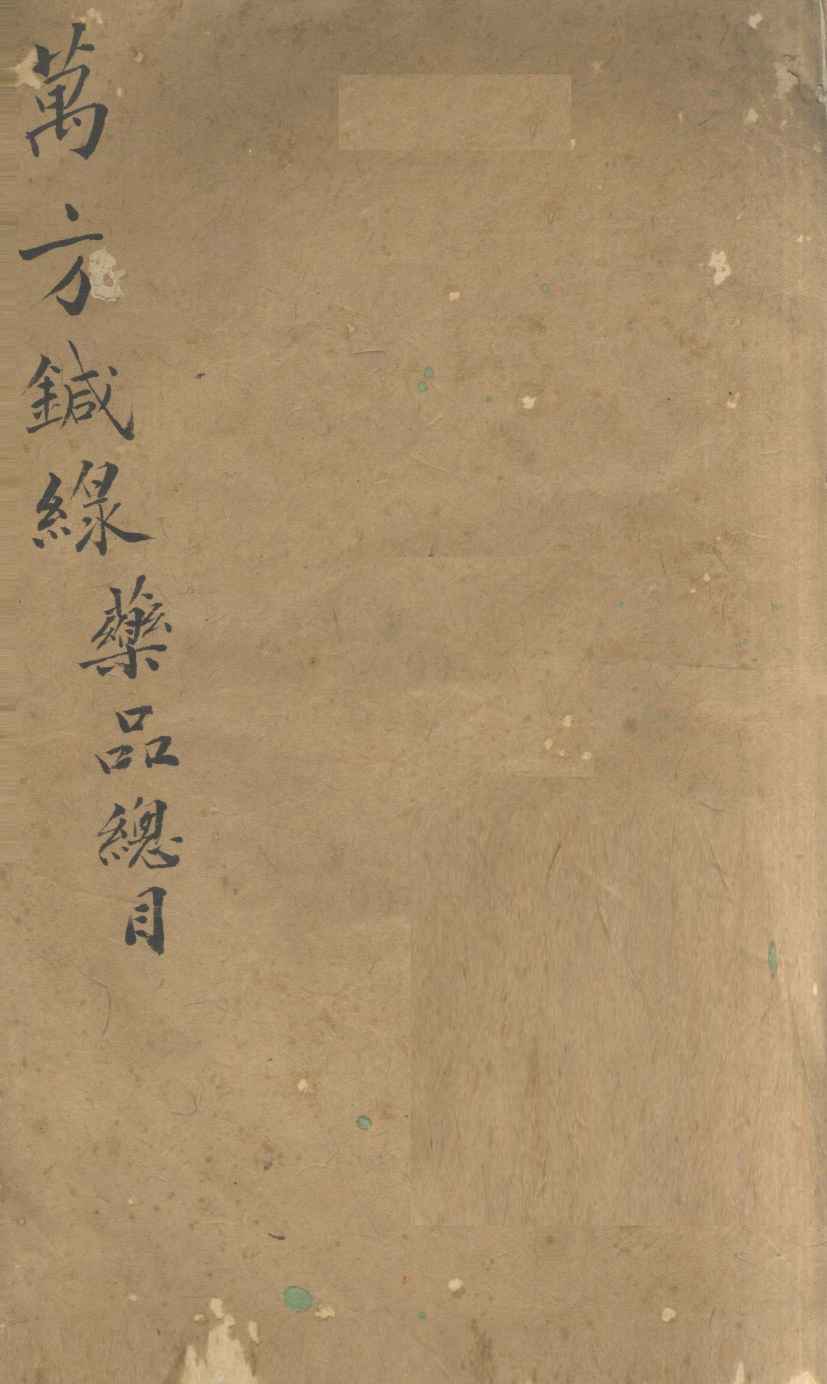 萬方鍼線藥品總目